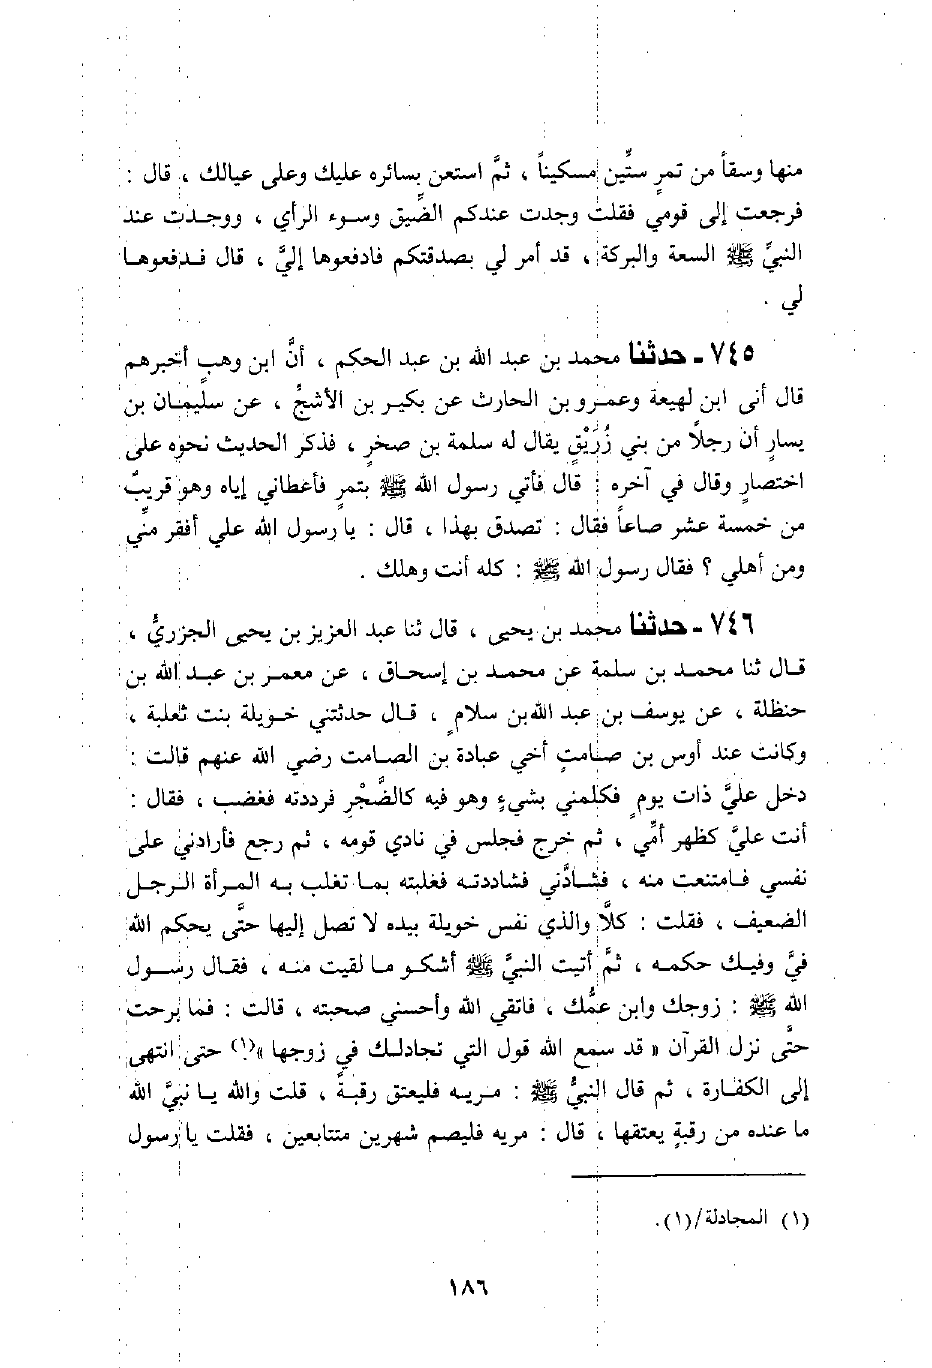 منها وسقاً من تمرٍ ستِّين مسكيناً ، ثمَّ استعن بسائره عليك وعلى عيالك ، قال :
فرجعت إلى قومي فقلت وجدت عندكم الضِّيق وسوء الرأي ، ووجدت عند
النبيِّ ﷺ السعة والبركة ، قد أمر لي بصدقتكم فادفعوها إليَّ ، قال فدفعوها
لي .
٧٤٥ - حدثنا محمد بن عبد الله بن عبد الحكم ، أنَّ ابن وهبٍ أخبرهم
قال أنى ابن لهيعة وعمرو بن الحارث عن بكير بن الأشجِّ ، عن سليمان بن
يسارٍ أن رجلاً من بني زُرَيْقٍ يقال له سلمة بن صخرٍ ، فذكر الحديث نحوه على
اختصارٍ وقال في آخره : قال فأتي رسول الله ﷺ بتمرٍ فأعطاني إياه وهو قريبٌ
من خمسة عشر صاعاً فقال : تصدق بهذا ، قال : يا رسول الله علي أفقر منِّي
ومن أهلي ؟ فقال رسول الله ﷺ : كله أنت وهلك .
٧٤٦ - حدثنا محمد بن يحيى ، قال ثنا عبد العزيز بن يحيى الجزريُّ ،
قال ثنا محمد بن سلمة عن محمد بن إسحاق ، عن معمر بن عبد الله بن
حنظلة ، عن يوسف بن عبد الله بن سلامٍ ، قال حدثتني خويلة بنت ثعلبة ،
وكانت عند أوس بن صامتٍ أخي عبادة بن الصامت رضي الله عنهم قالت :
دخل عليَّ ذات يومٍ فكلمني بشيءٍ وهو فيه كالضَّجْرِ فرددته فغضب ، فقال :
أنت عليَّ كظهر أمِّي ، ثم خرج فجلس في نادي قومه ، ثم رجع فأرادني على
نفسي فامتنعت منه ، فشادَّني فشاددته فغلبته بما تغلب به المرأة الرجل
الضعيف ، فقلت : كلاَّ والذي نفس خويلة بيده لا تصل إليها حتَّى يحكم الله
فيَّ وفيك حكمه ، ثمَّ أتيت النبيَّ ﷺ أشكو ما لقيت منه ، فقال رسول
الله ﷺ : زوجك وابن عمُّك ، فاتقي الله وأحسني صحبته ، قالت : فما برحت
حتَّى نزل القرآن « قد سمع الله قول التي تجادلك في زوجها »(١) حتى انتهى
إلى الكفارة ، ثم قال النبيُّ ﷺ : مريه فليعتق رقبةً ، قلت والله يا نبيَّ الله
ما عنده من رقبةٍ يعتقها ، قال : مريه فليصم شهرين متتابعين ، فقلت يا رسول
(١) المجادلة/(١).
١٨٦